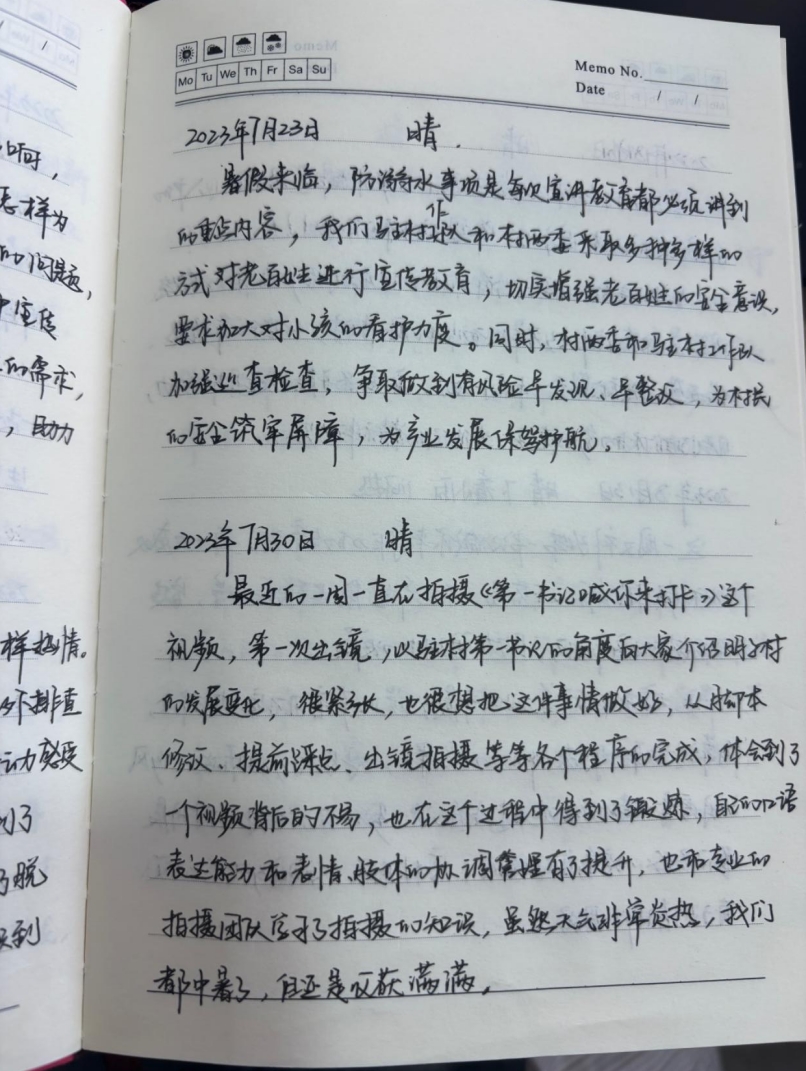 响，
怎样为
的问题，
中宣传
的需求，
，助力
样热情。
外排查
动力致
到了
了脱
到
Mo Tu We Th Fr Sa Su
Memo No.
Date / /
2023年7月23日 晴.
暑假来临，防溺水事项是每次宣讲教育都必须讲到
的重点内容，我们驻村工作队和村两委采取多种多样的
方式对老百姓进行宣传教育，切实增强老百姓的安全意识，
要求加大对小孩的看护力度。同时，村两委和驻村工作队
加强巡查检查，争取做到有风险早发现、早整改，为村民
的安全筑牢屏障，为产业发展保驾护航。
2023年7月30日 晴
最近的一周一直在拍摄《第一书记喊你来打卡》这个
视频，第一次出镜，以驻村第一书记的角度向大家介绍明村
的发展变化，很紧张，也很想把这件事情做好，从脚本
修改、提前踩点、出镜拍摄等等各个程序的完成，体会到了
一个视频背后的不易，也在这个过程中得到了锻炼，自己的口语
表达能力和表情、肢体的协调管理有了提升，也和专业的
拍摄团队学习了拍摄的知识，虽然天气非常炎热，我们
都中暑了，但还是收获满满。